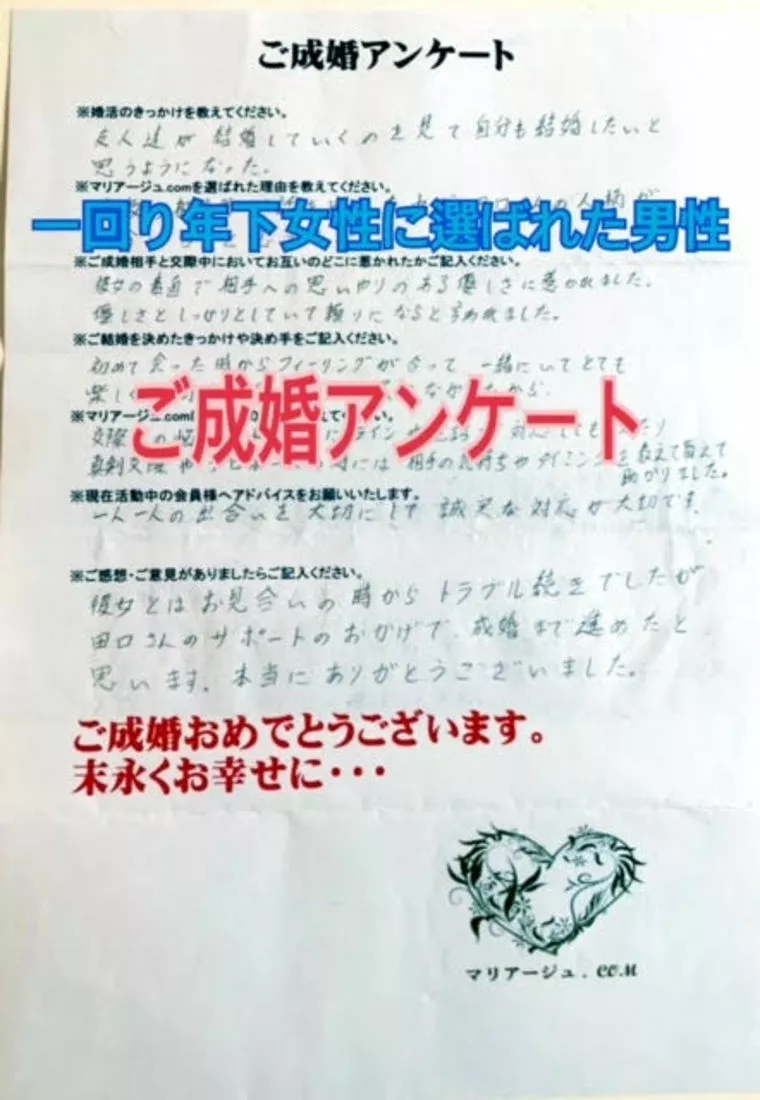 ご成婚アンケート
※婚活のきっかけを教えてください。
友人達が結婚していくのを見て自分も結婚したいと
思うようになった。
※マリアージュ.comを選ばれた理由を教えてください。
人柄が
一回り年下女性に選ばれた男性
※ご成婚相手と交際中においてお互いのどこに惹かれたかご記入ください。
彼女の素直で相手への思いやりのある優しさに惹かれました。
優しさとしっかりとしていて頼りになると言われました。
※ご結婚を決めたきっかけや決め手をご記入ください。
初めて会った時からフィーリングが合って一緒にいてとても
楽しく なかったから。
ご成婚アンケート
※マリアージュ.com ください。
交際 の悩 ライン 対応してもらったり
真剣交際や には相手の気持ちやタイミングを教えて貰えて
助かりました。
※現在活動中の会員様へアドバイスをお願いいたします。
一人一人の出会いを大切にして誠実な対応が大切です。
※ご感想・ご意見がありましたらご記入ください。
彼女とはお見合いの時からトラブル続きでしたが
田口さんのサポートのおかげで、成婚まで進めたと
思います。本当にありがとうございました。
ご成婚おめでとうございます。
末永くお幸せに・・・
マリアージュ.COM